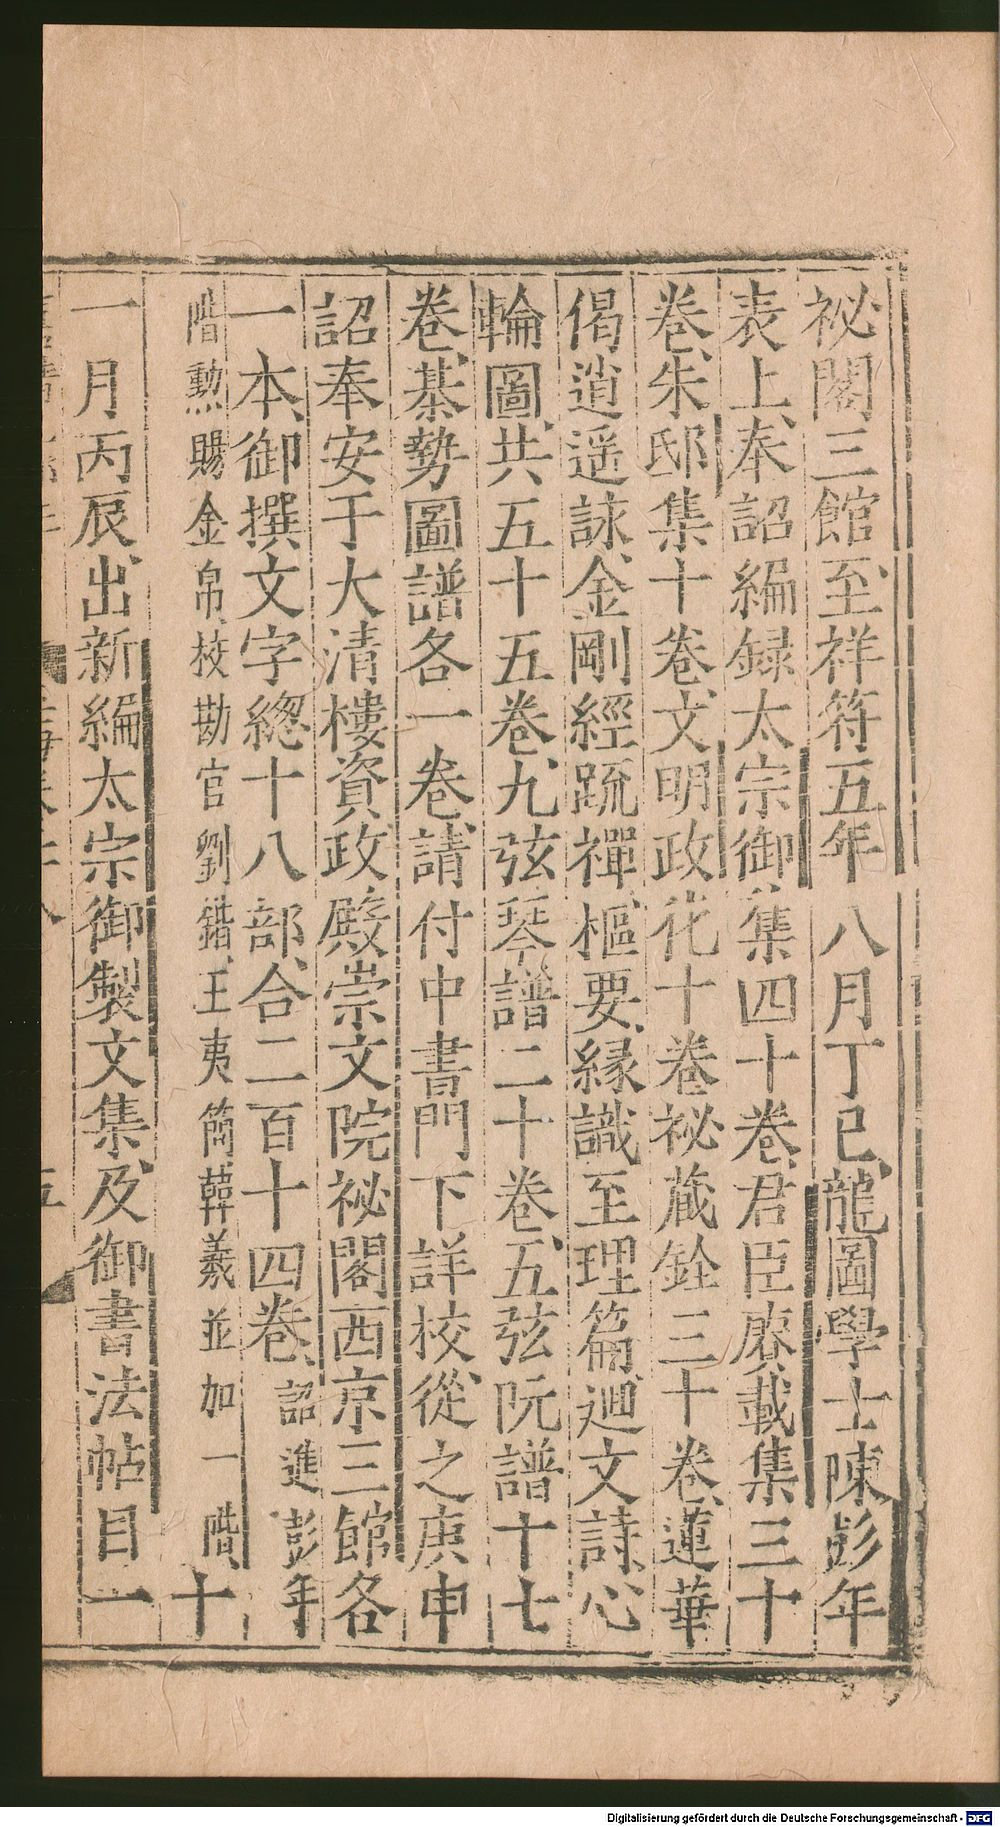 祕閣三館至祥符五年八月丁巳龍圖學士陳彭年
表上奉詔編録太宗御集四十卷君臣賡載集三十
卷朱邸集十卷文明政化十卷祕蔵銓三十卷蓮華
偈逍遥詠金剛經䟽禪樞要縁識至理篇廻文詩心
輪圖共五十五卷九弦琴譜二十卷五弦阮譜十七
卷棊勢圖譜各一卷請付中書門下詳校從之庚申
詔奉安于大清樓資政殿崇文院祕閣西京三館各
一本御撰文字總十八部合二百十四卷詔進彭年
階勳賜金帛校勘官劉鍇王夷簡韓羲並加一階十
一月丙辰出新編太宗御製文集及御書法帖目一
五
Digitalisierung gefördert durch die Deutsche Forschungsgemeinschaft - DFG